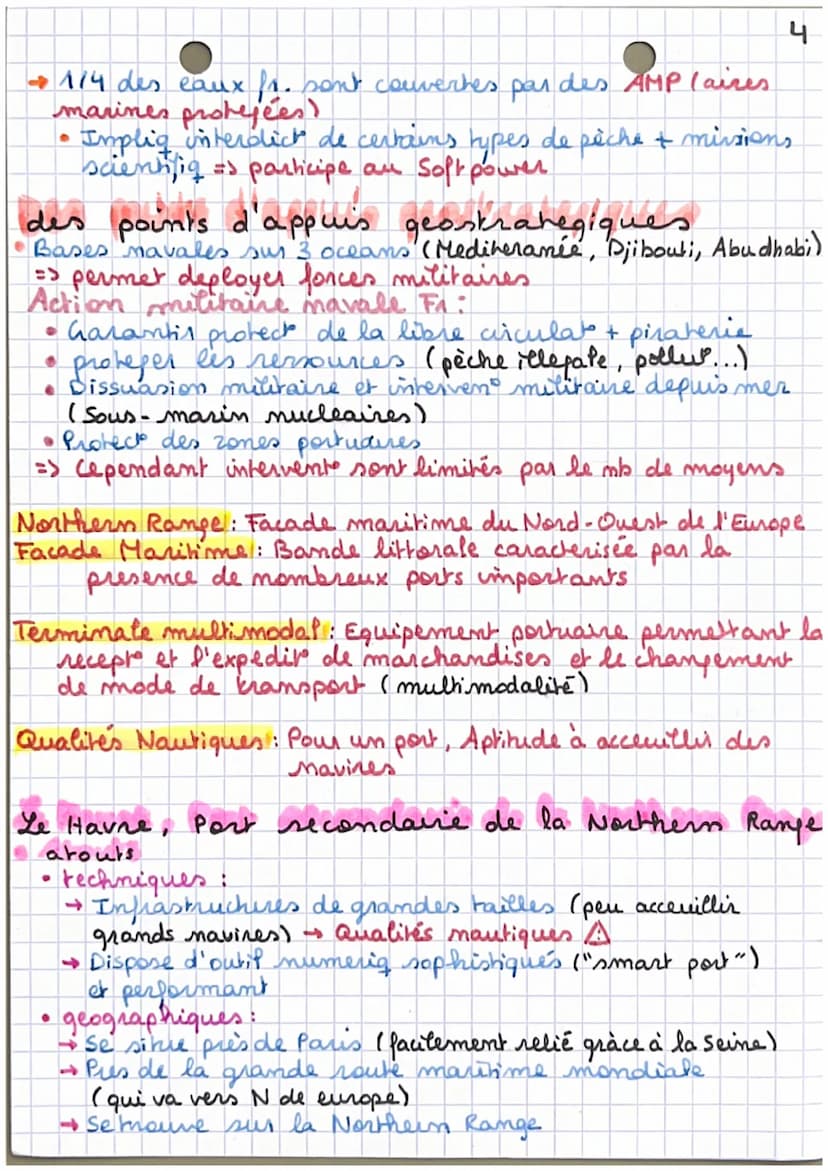 4
→ 1/4 des eaux fr. sont couvertes par des AMP (aires
marines protegées)
• Impliq interdict° de certains types de pêche + missions
scientifiq => participe au Soft power
des points d'appuis geostrategiques
• Bases navales sur 3 oceans (Mediteranée, Djibouti, Abu dhabi)
=> permet deployer forces militaires
Action militaire navale Fr :
• Garantir protect° de la libre circulat° + piraterie
• proteger les ressources (pêche illegale, pollut°...)
• Dissuasion militaire et intervent° militaire depuis mer
(Sous-marin nucleaires)
• Protect° des zones portuaires
=> Cependant intervent° sont limités par le nb de moyens
Northern Range : Facade maritime du Nord-Ouest de l'Europe
Facade Maritime : Bande littorale caracterisée par la
presence de nombreux ports importants
Terminale multimodal : Equipement portuaire permettant la
recept° et l'expedit° de marchandises et le changement
de mode de transport (multimodalité)
Qualités Nautiques : Pour un port, Aptitude à acceuillir des
navires
Le Havre, Port secondaire de la Northern Range
• atouts
• techniques :
→ Infrastructures de grandes tailles (peu acceuillir
grands navires) → Qualités nautiques ⚠
→ Dispose d'outil numeriq sophistiqués ("smart port")
et performant
• geographiques :
→ Se situe près de Paris (facilement relié grâce à la Seine)
→ Pres de la grande route maritime mondiale
(qui va vers N de europe)
→ Se trouve sur la Northern Range